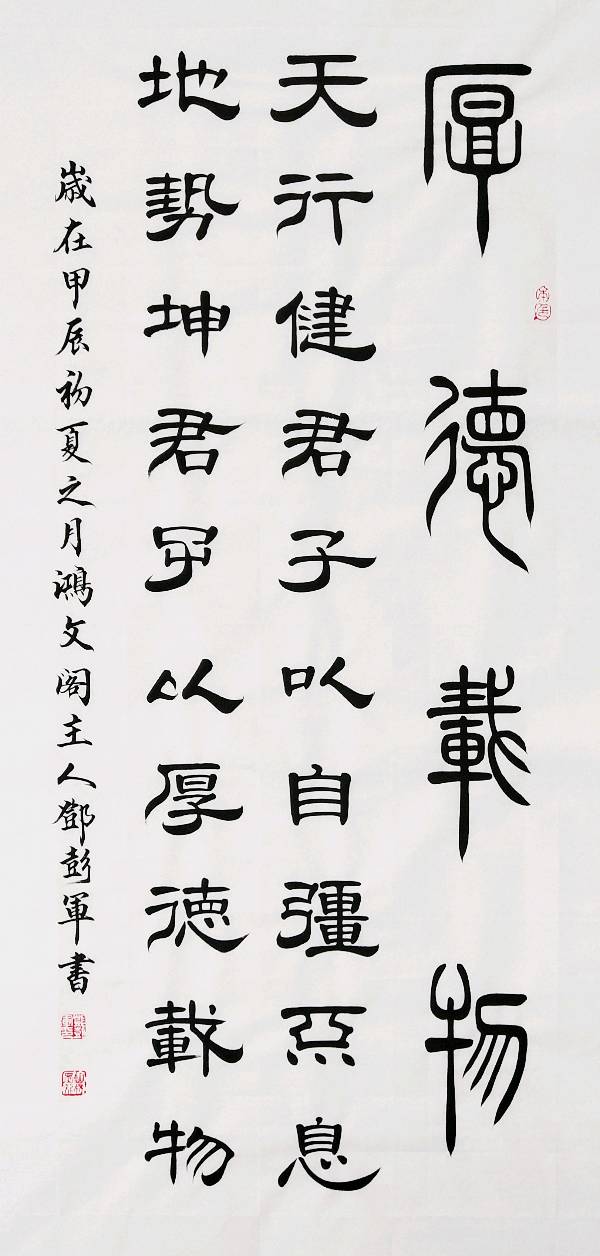 厚德載物
天行健君子以自彊不息
地勢坤君子以厚德載物
歲在甲辰初夏之月鴻文閣主人鄧彭軍書